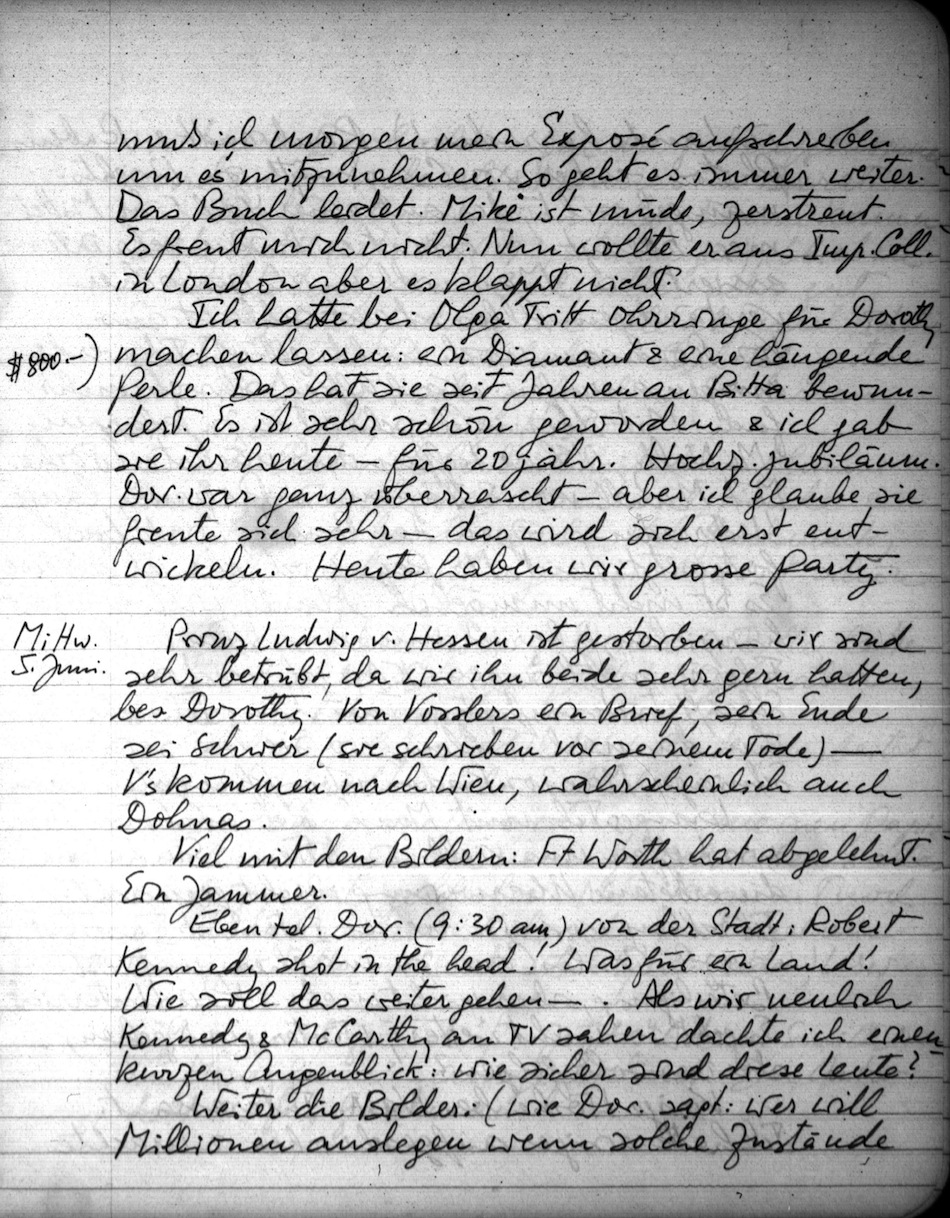 muß ich morgen mein Exposé aufschreiben
um es mitzunehmen. So geht es immer weiter.
Das Buch leidet. Mike ist müde, zerstreut.
Es freut mich nicht. Nun wollte er ans Imp. Coll.
in London aber es klappt nicht.
Ich hatte bei Olga Tritt Ohrringe für Dorothy
$800.-) machen lassen: ein Diamant & eine hängende
Perle. Das hat sie seit Jahren an Bitta bewun-
dert. Es ist sehr schön geworden & ich gab
sie ihr heute – für 20 jähr. Hochz. jubiläum.
Dor. war ganz überrascht – aber ich glaube sie
freute sich sehr – das wird sich erst ent-
wickeln. Heute haben wir grosse Party.
Mittw. Prinz Ludwig v. Hessen ist gestorben – wir sind
5. Juni. sehr betrübt, da wir ihn beide sehr gern hatten,
bes Dorothy. Von Vosslers ein Brief, sein Ende
sei schwer (sie schrieben vor seinem Tode) —
V's kommen nach Wien, wahrscheinlich auch
Dohnas.
Viel mit den Bildern: Ft Worth hat abgelehnt.
Ein Jammer.
Eben tel. Dor. (9:30 am) von der Stadt: Robert
Kennedy shot in the head! Was für ein Land!
Wie soll das weiter gehen – . Als wir neulich
Kennedy & McCarthy an TV sahen dachte ich einen
kurzen Augenblick: wie sicher sind diese Leute?
Weiter die Bilder: (wie Dor. sagt: wer will
Millionen auslegen wenn solche Zustände